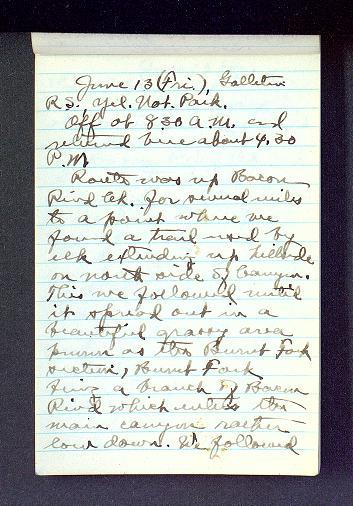 June 13 (Fri.), Gallatin
R.S., Yel. Nat. Park.
Off at 8:30 A.M. and
returned here about 4:30
P.M.
Route was up Bacon
Rind Ck. for several miles
to a point where we
found a trail used by
elk extending up hillside
on north side of canyon.
This we followed until
it spread out in a
beautiful grassy area
known as the Burnt Fork
section, Burnt Fork
being a branch of Bacon
Rind which enters the
main canyon rather
low down. We followed